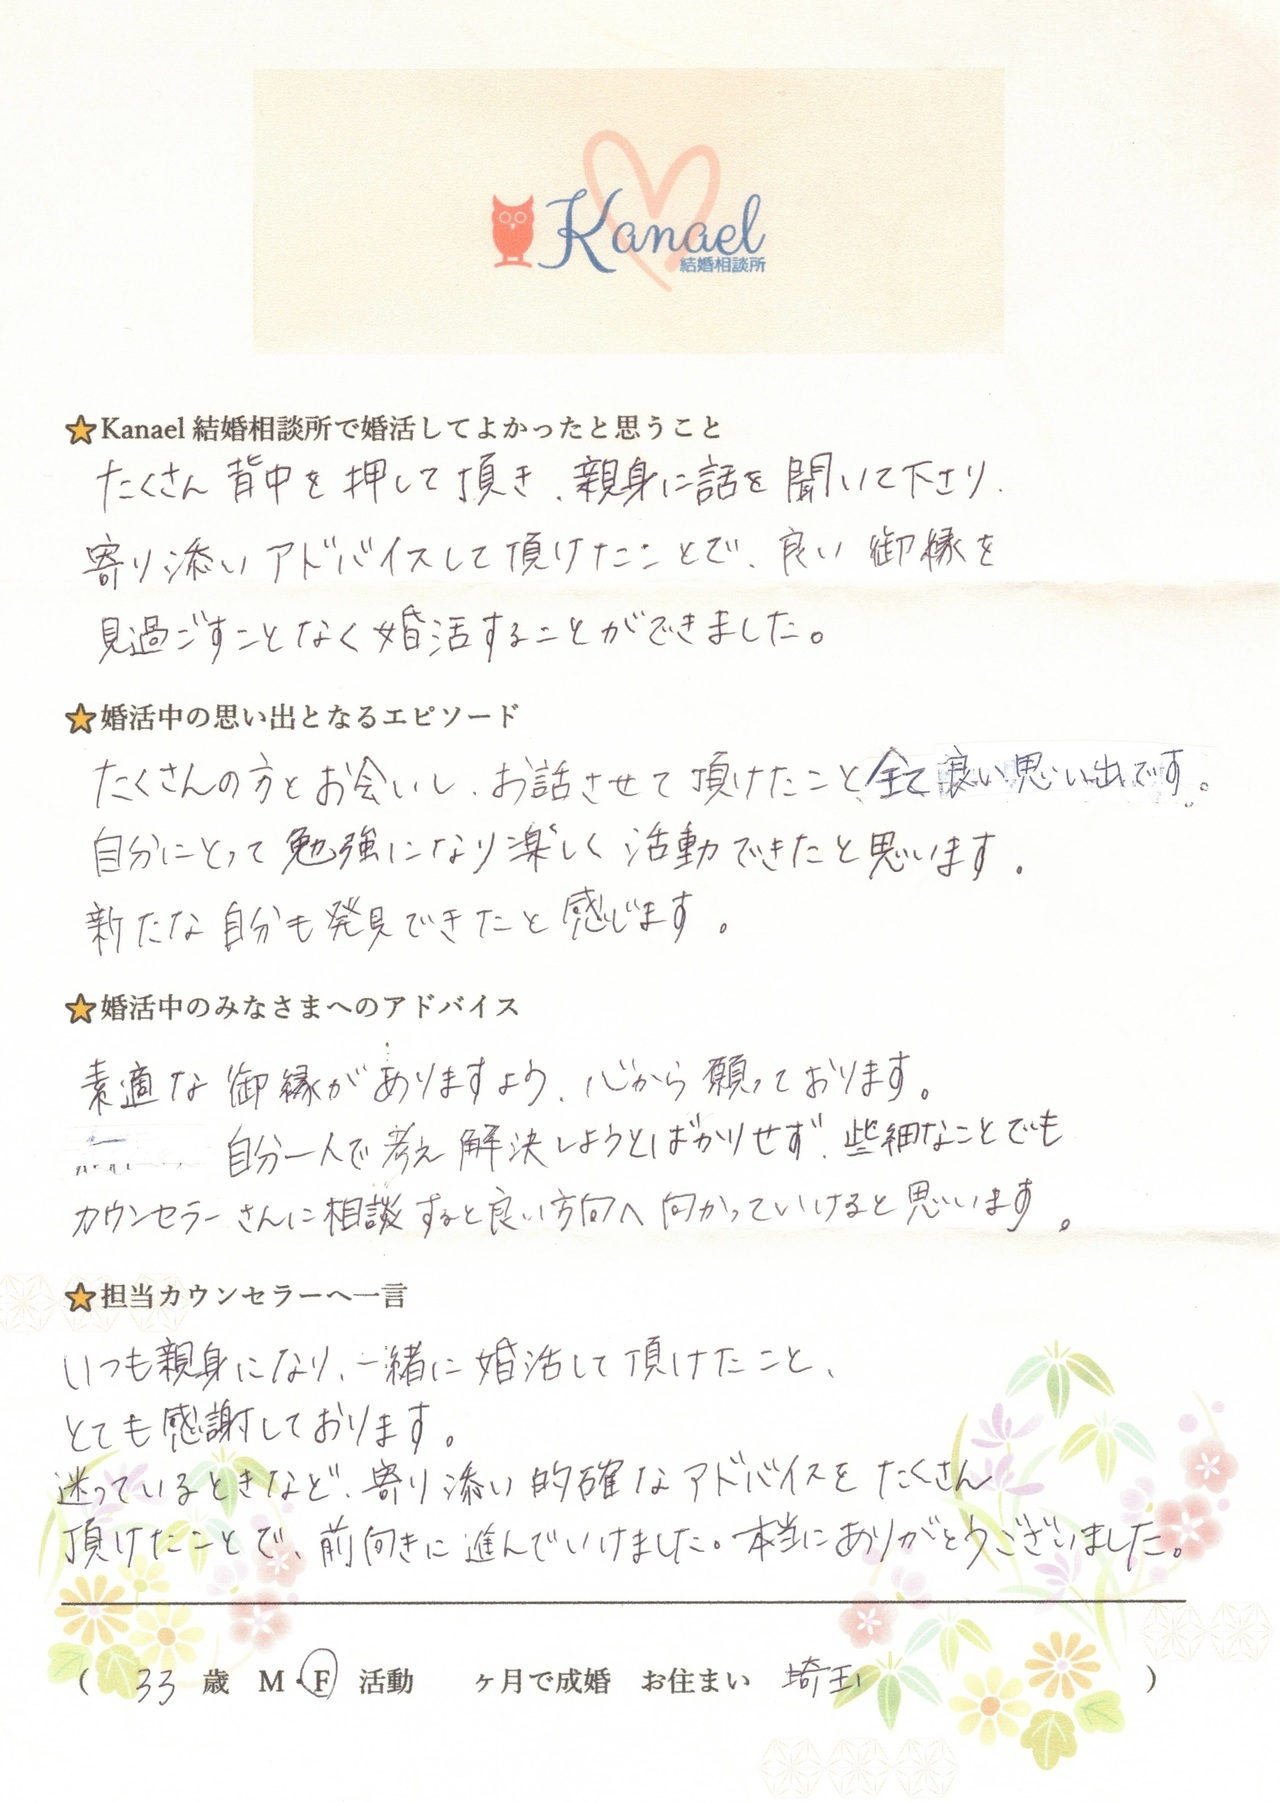 Kanael
結婚相談所
Kanael 結婚相談所で婚活してよかったと思うこと
たくさん背中を押して頂き、親身に話を聞いて下さり、
寄り添いアドバイスして頂けたことで、良い御縁を
見過ごすことなく婚活することができました。
婚活中の思い出となるエピソード
たくさんの方とお会いし、お話させて頂けたこと全て良い思い出です。
自分にとって勉強になり楽しく活動できたと思います。
新たな自分も発見できたと感じます。
婚活中のみなさまへのアドバイス
素適な御縁がありますよう、心から願っております。
自分一人で考え解決しようとばかりせず、些細なことでも
カウンセラーさんに相談すると良い方向へ向かっていけると思います。
担当カウンセラーへ一言
いつも親身になり、一緒に婚活して頂けたこと、
とても感謝しております。
迷っているときなど、寄り添い的確なアドバイスをたくさん
頂けたことで、前向きに進んでいけました。本当にありがとうございました。
( 33 歳 M・F 活動 ヶ月で成婚 お住まい 埼玉 )